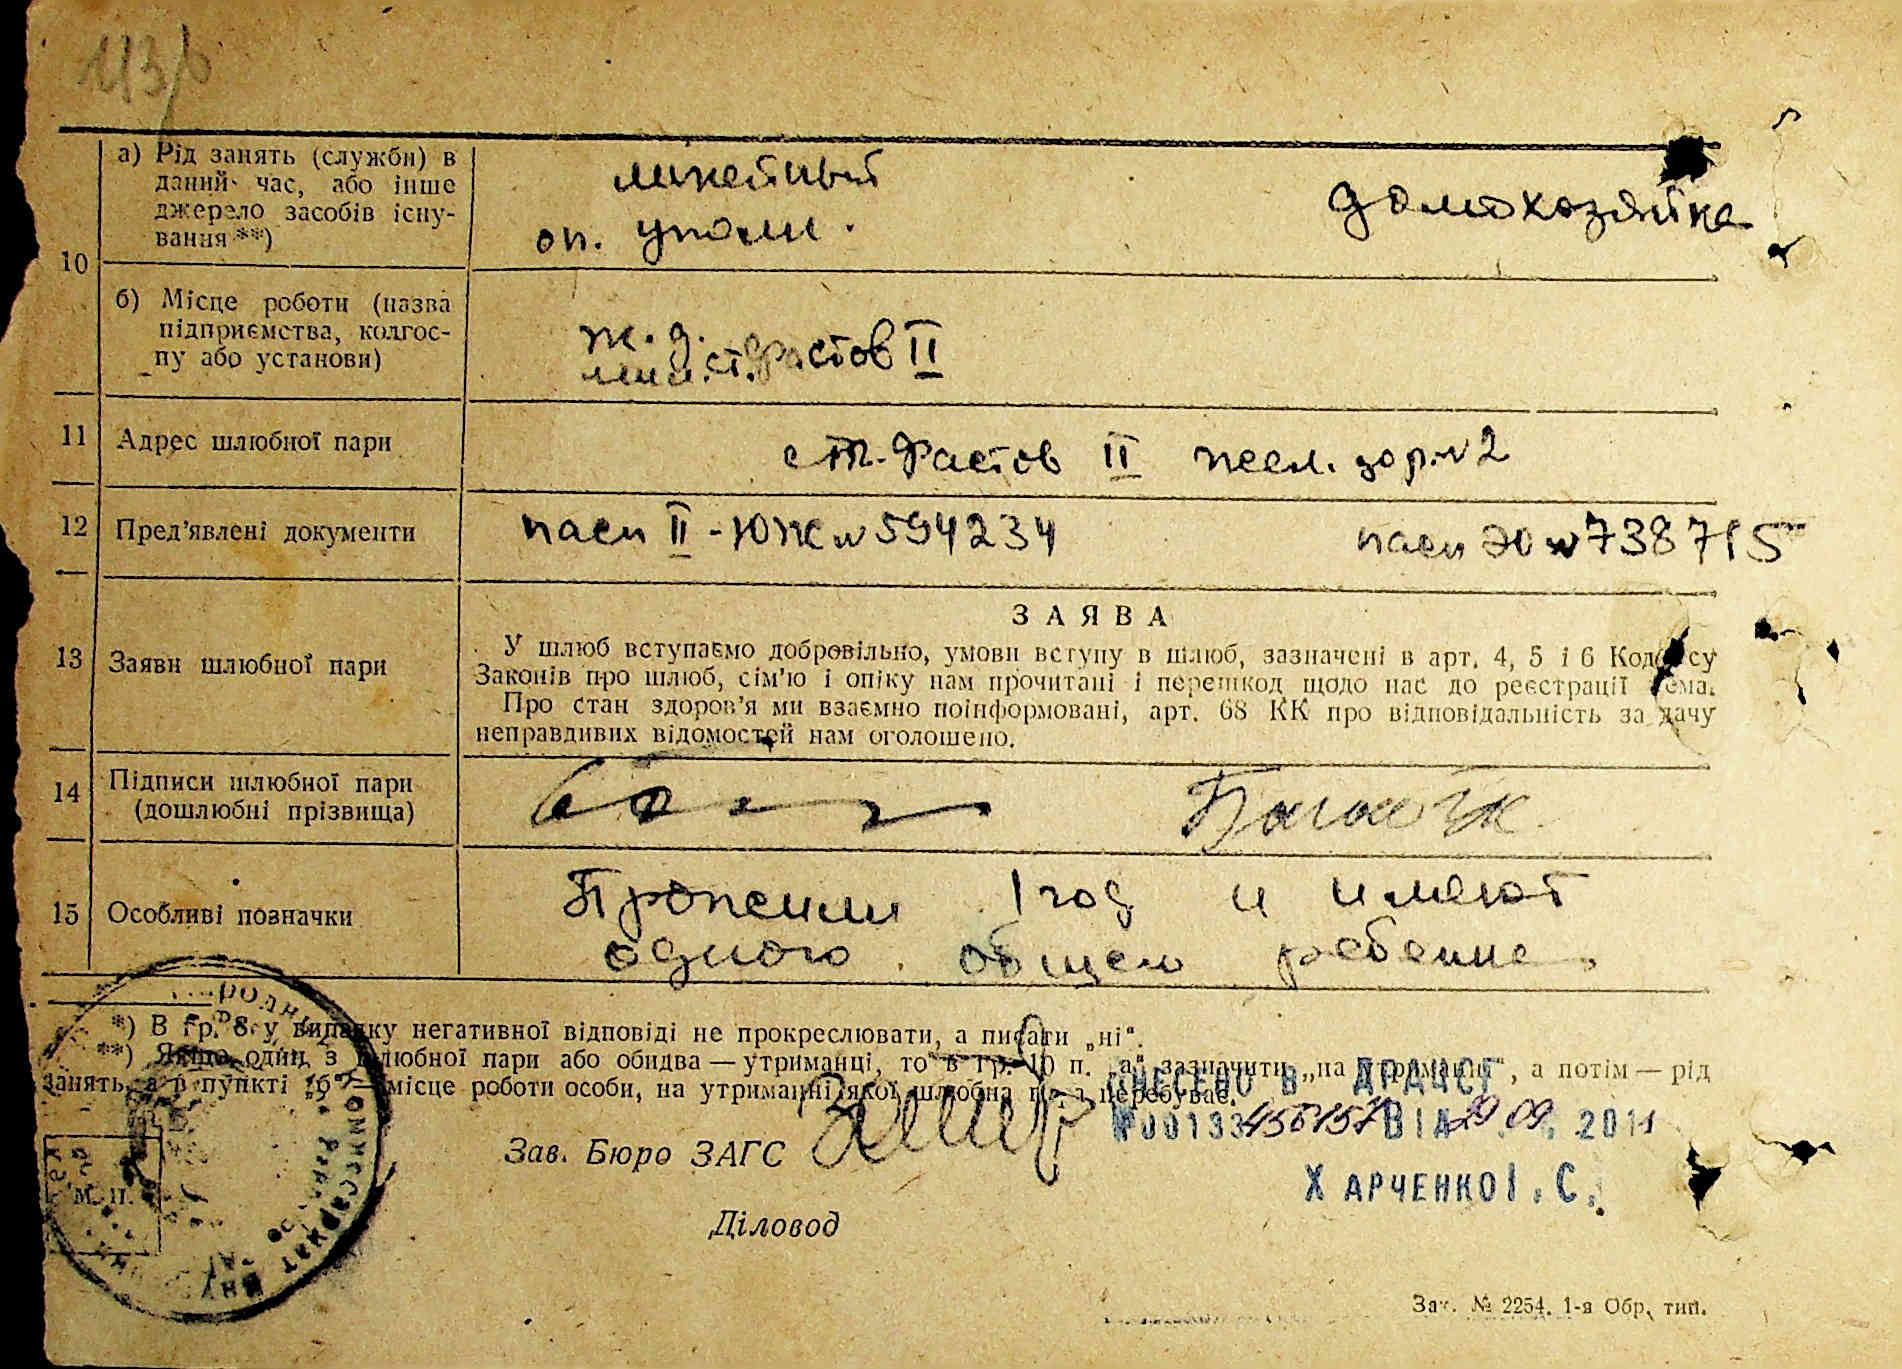 а) Рід занять (служби) в
даний час, або інше
джерело засобів існу-
вання **)
линейный
оп. уполн.
домохозяйка
10
б) Місце роботи (назва
підприємства, колгос-
пу або установи)
ж.д.
ст. Фастов II
11
Адрес шлюбної пари
ст. Фастов II 2
12
Пред’явлені документи
пасп II - ЮЖ № 594234
пасп ЭО № 738715
13
Заяви шлюбної пари
ЗАЯВА
У шлюб вступаємо добровільно, умови вступу в шлюб, зазначені в арт. 4, 5 і 6 Кодексу
Законів про шлюб, сім’ю і опіку нам прочитані і перешкод щодо нас до реєстрації нема.
Про стан здоров’я ми взаємно поінформовані, арт. 68 КК про відповідальність за дачу
неправдивих відомостей нам оголошено.
14
Підписи шлюбної пари
(дошлюбні прізвища)
15
Особливі позначки
Прожили 1 год и имеют
одного общего ребенка.
*) В гр. 8 у випадку негативної відповіді не прокреслювати, а писати „ні“.
**) Якщо один з шлюбної пари або обидва — утриманці, то в гр. 10 п. „а“ зазначити „на утриманні“, а потім — рід
занять, а в пункті „б“ — місце роботи особи, на утриманні якої шлюбна пара перебуває.
ВНЕСЕНО В ДРАЦСГ
№00133456157 ВІД 29.09.2011
ХАРЧЕНКО І.С.
Зав. Бюро ЗАГС
М. П.
Діловод
Зак. № 2254. 1-я Обр. тип.